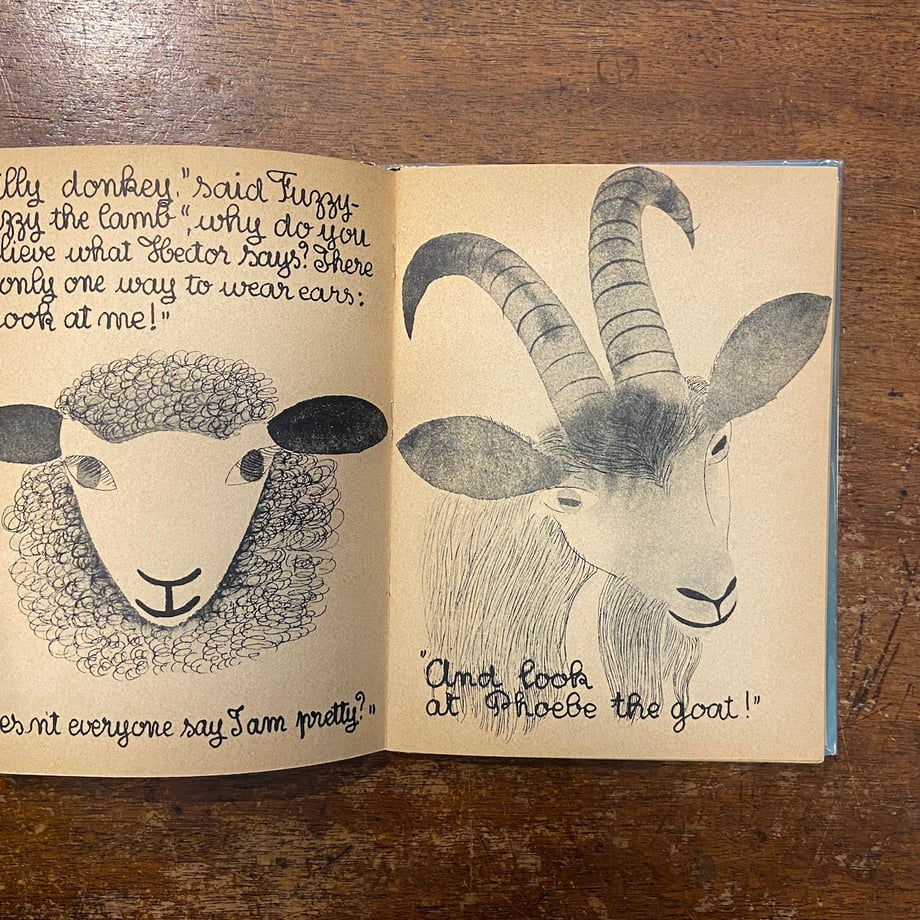 lly donkey," said Fuzzy-
zzy the lamb ", why do you
lieve what Hector says? There
only one way to wear ears:
ook at me!"
es n't everyone say I am pretty?"
"And look
at Phoebe the goat!"